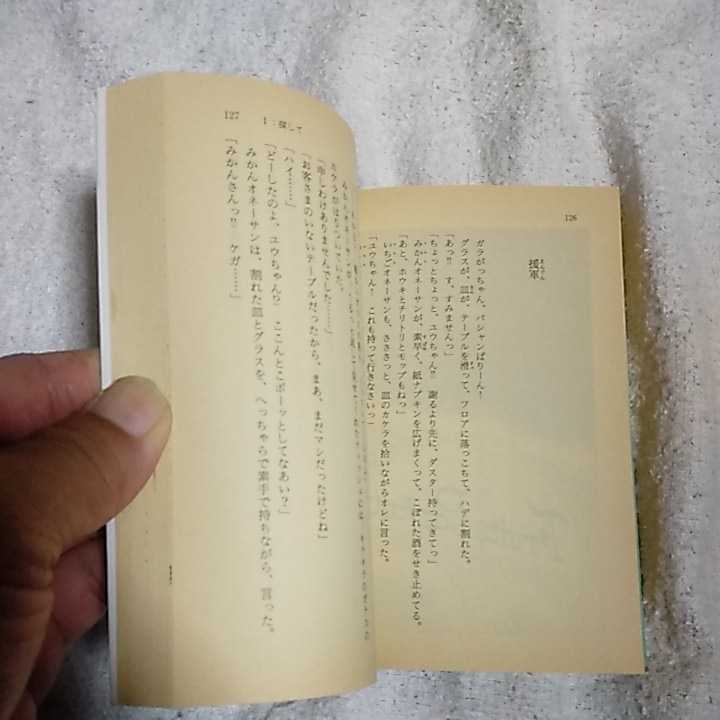 126
援軍
えんぐん
ガラがっちゃん、バシャンぱりーん!
グラスが、皿が、テーブルを滑って、フロアに落っこちて、ハデに割れた。
「あっ!! す、すみませんっ」
「ちょっとちょっと、ユウちゃん!! 謝るより先に、ダスター持ってきてっ」
みかんオネーサンが、素早く、紙ナプキンを広げまくって、こぼれた酒をせき止めてる。
「あと、ホウキとチリトリとモップもねっ」
いちごオネーサンも、さささっと、皿のカケラを拾いながらオレに言った。
「ユウちゃん! これも持って行きなさいっ」
127
1:探して
「申しわけありませんでした……」
「お客さまのいないテーブルだったから、まあ、まだマシだったけどね」
「ハイ……」
「どーしたのよ、ユウちゃん!? ここんとこボーッとしてなあい?」
みかんオネーサンは、割れた皿とグラスを、へっちゃらで素手で持ちながら、言った。
「みかんさんっ!! ケガ……」